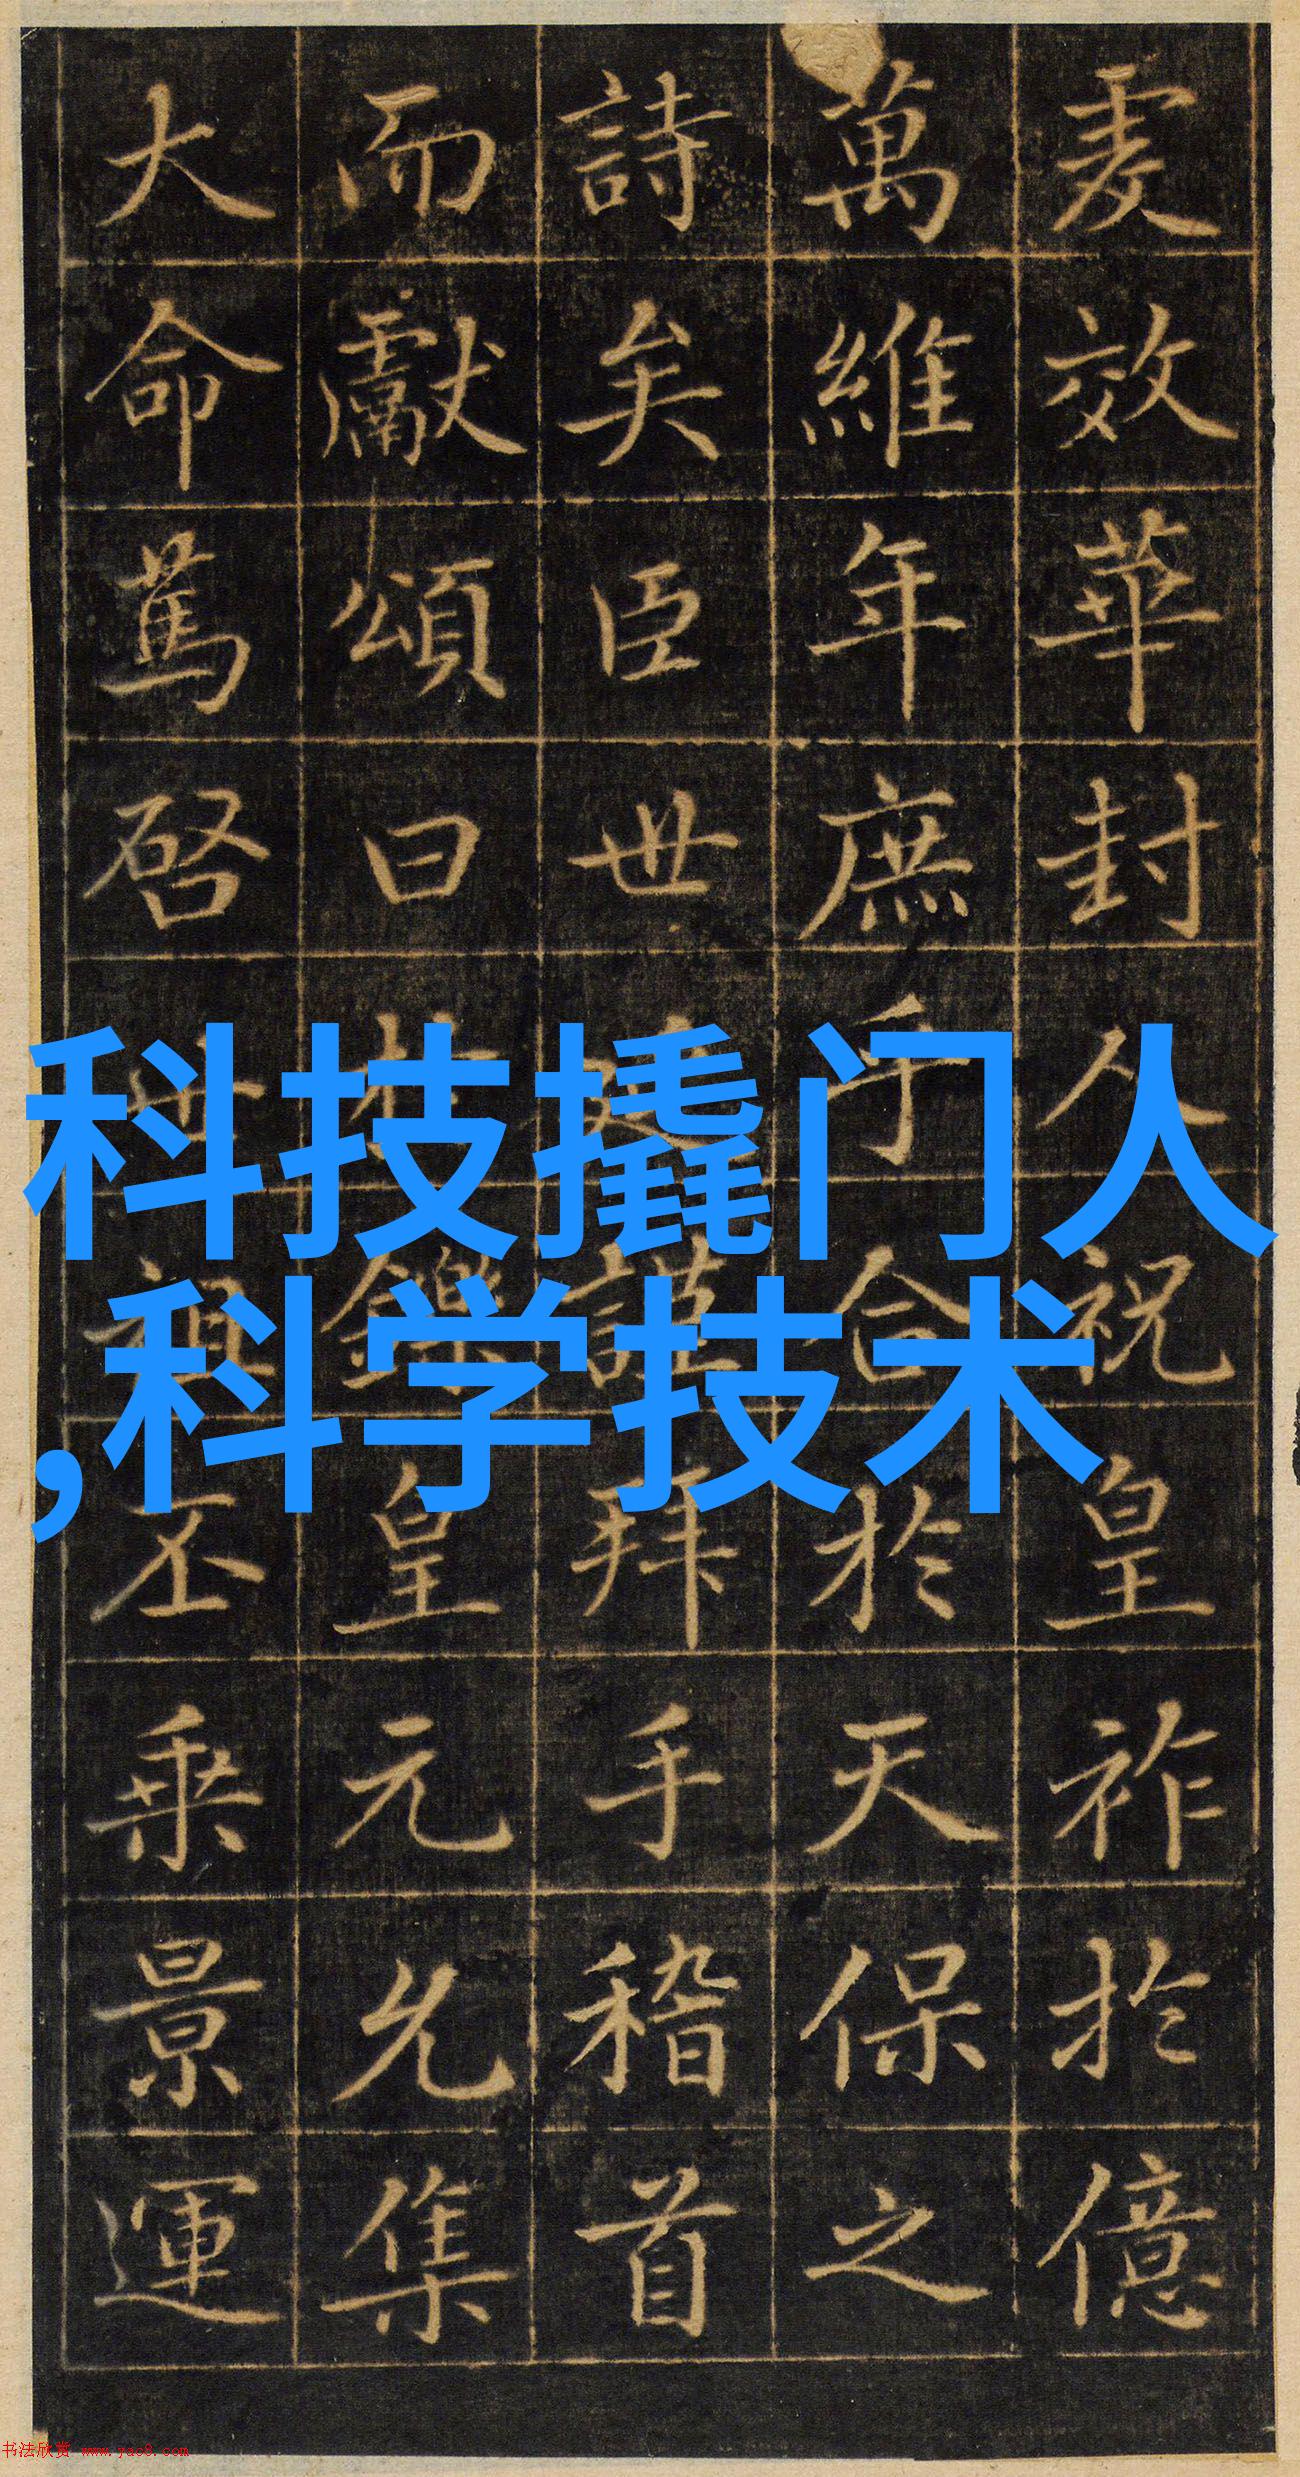 爰效華封人祝皇祚於億
萬維年庶乎合於天保之
詩矣臣世謹拜手稽首
而獻頌曰於鑠皇元允集
大命篤啓世祖丕乘景運
科技撬门人
,科学技术
书法欣赏 www.yac8.com